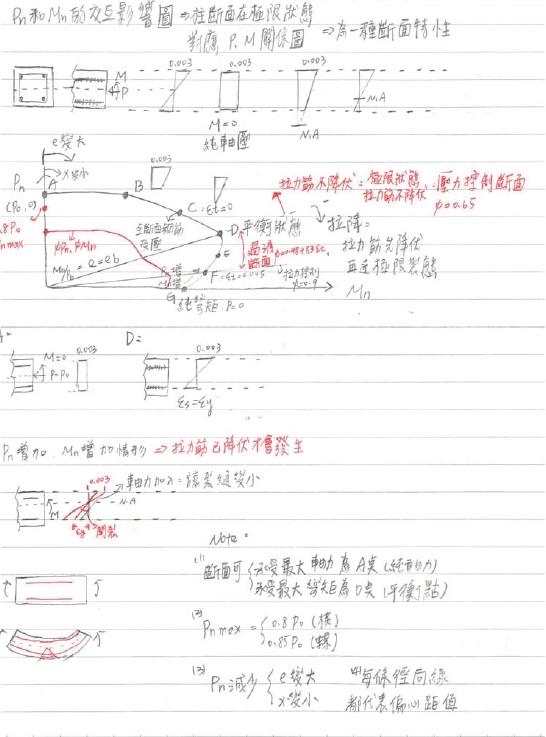 Pn和Mn的交互影響圖 ⇒ 柱斷面在極限狀態
對應 P、M 關係圖 ⇒ 為一種斷面特性
0.003 0.003 0.003
M
P
M=0
純軸壓
N.A
N.A
e變大
x變小
0.003
Pn
A
B
(Po, 0)
0.8Po
Pn max
C: εt=0
全斷面
D 平衡狀態
拉力筋不降伏: 極限狀態
拉力筋不降伏
壓力控制斷面
φ=0.65
φPn, φMn
e=eb
過渡
斷面
E
F: εt=0.005
拉力控制
φ=0.9
拉降:
拉力筋先降伏
再達極限狀態
Mn
G
純彎矩 P=0
D=
M=0
P=Po
0.003
0.003
εs=εy
Pn增加、Mn增加情形 ⇒ 拉力筋已降伏才會發生
0.003
軸力加入: 讓裂縫變小
N.A
M
εy
開裂
Note:
(1) 斷面可 承受最大軸力為A點 (純軸力)
承受最大彎矩為D點 (平衡點)
(2) Pn max = 0.8Po (橫)
0.85Po (螺)
(3) Pn減少 e變大
x變小
每條徑向線
都代表偏心距值